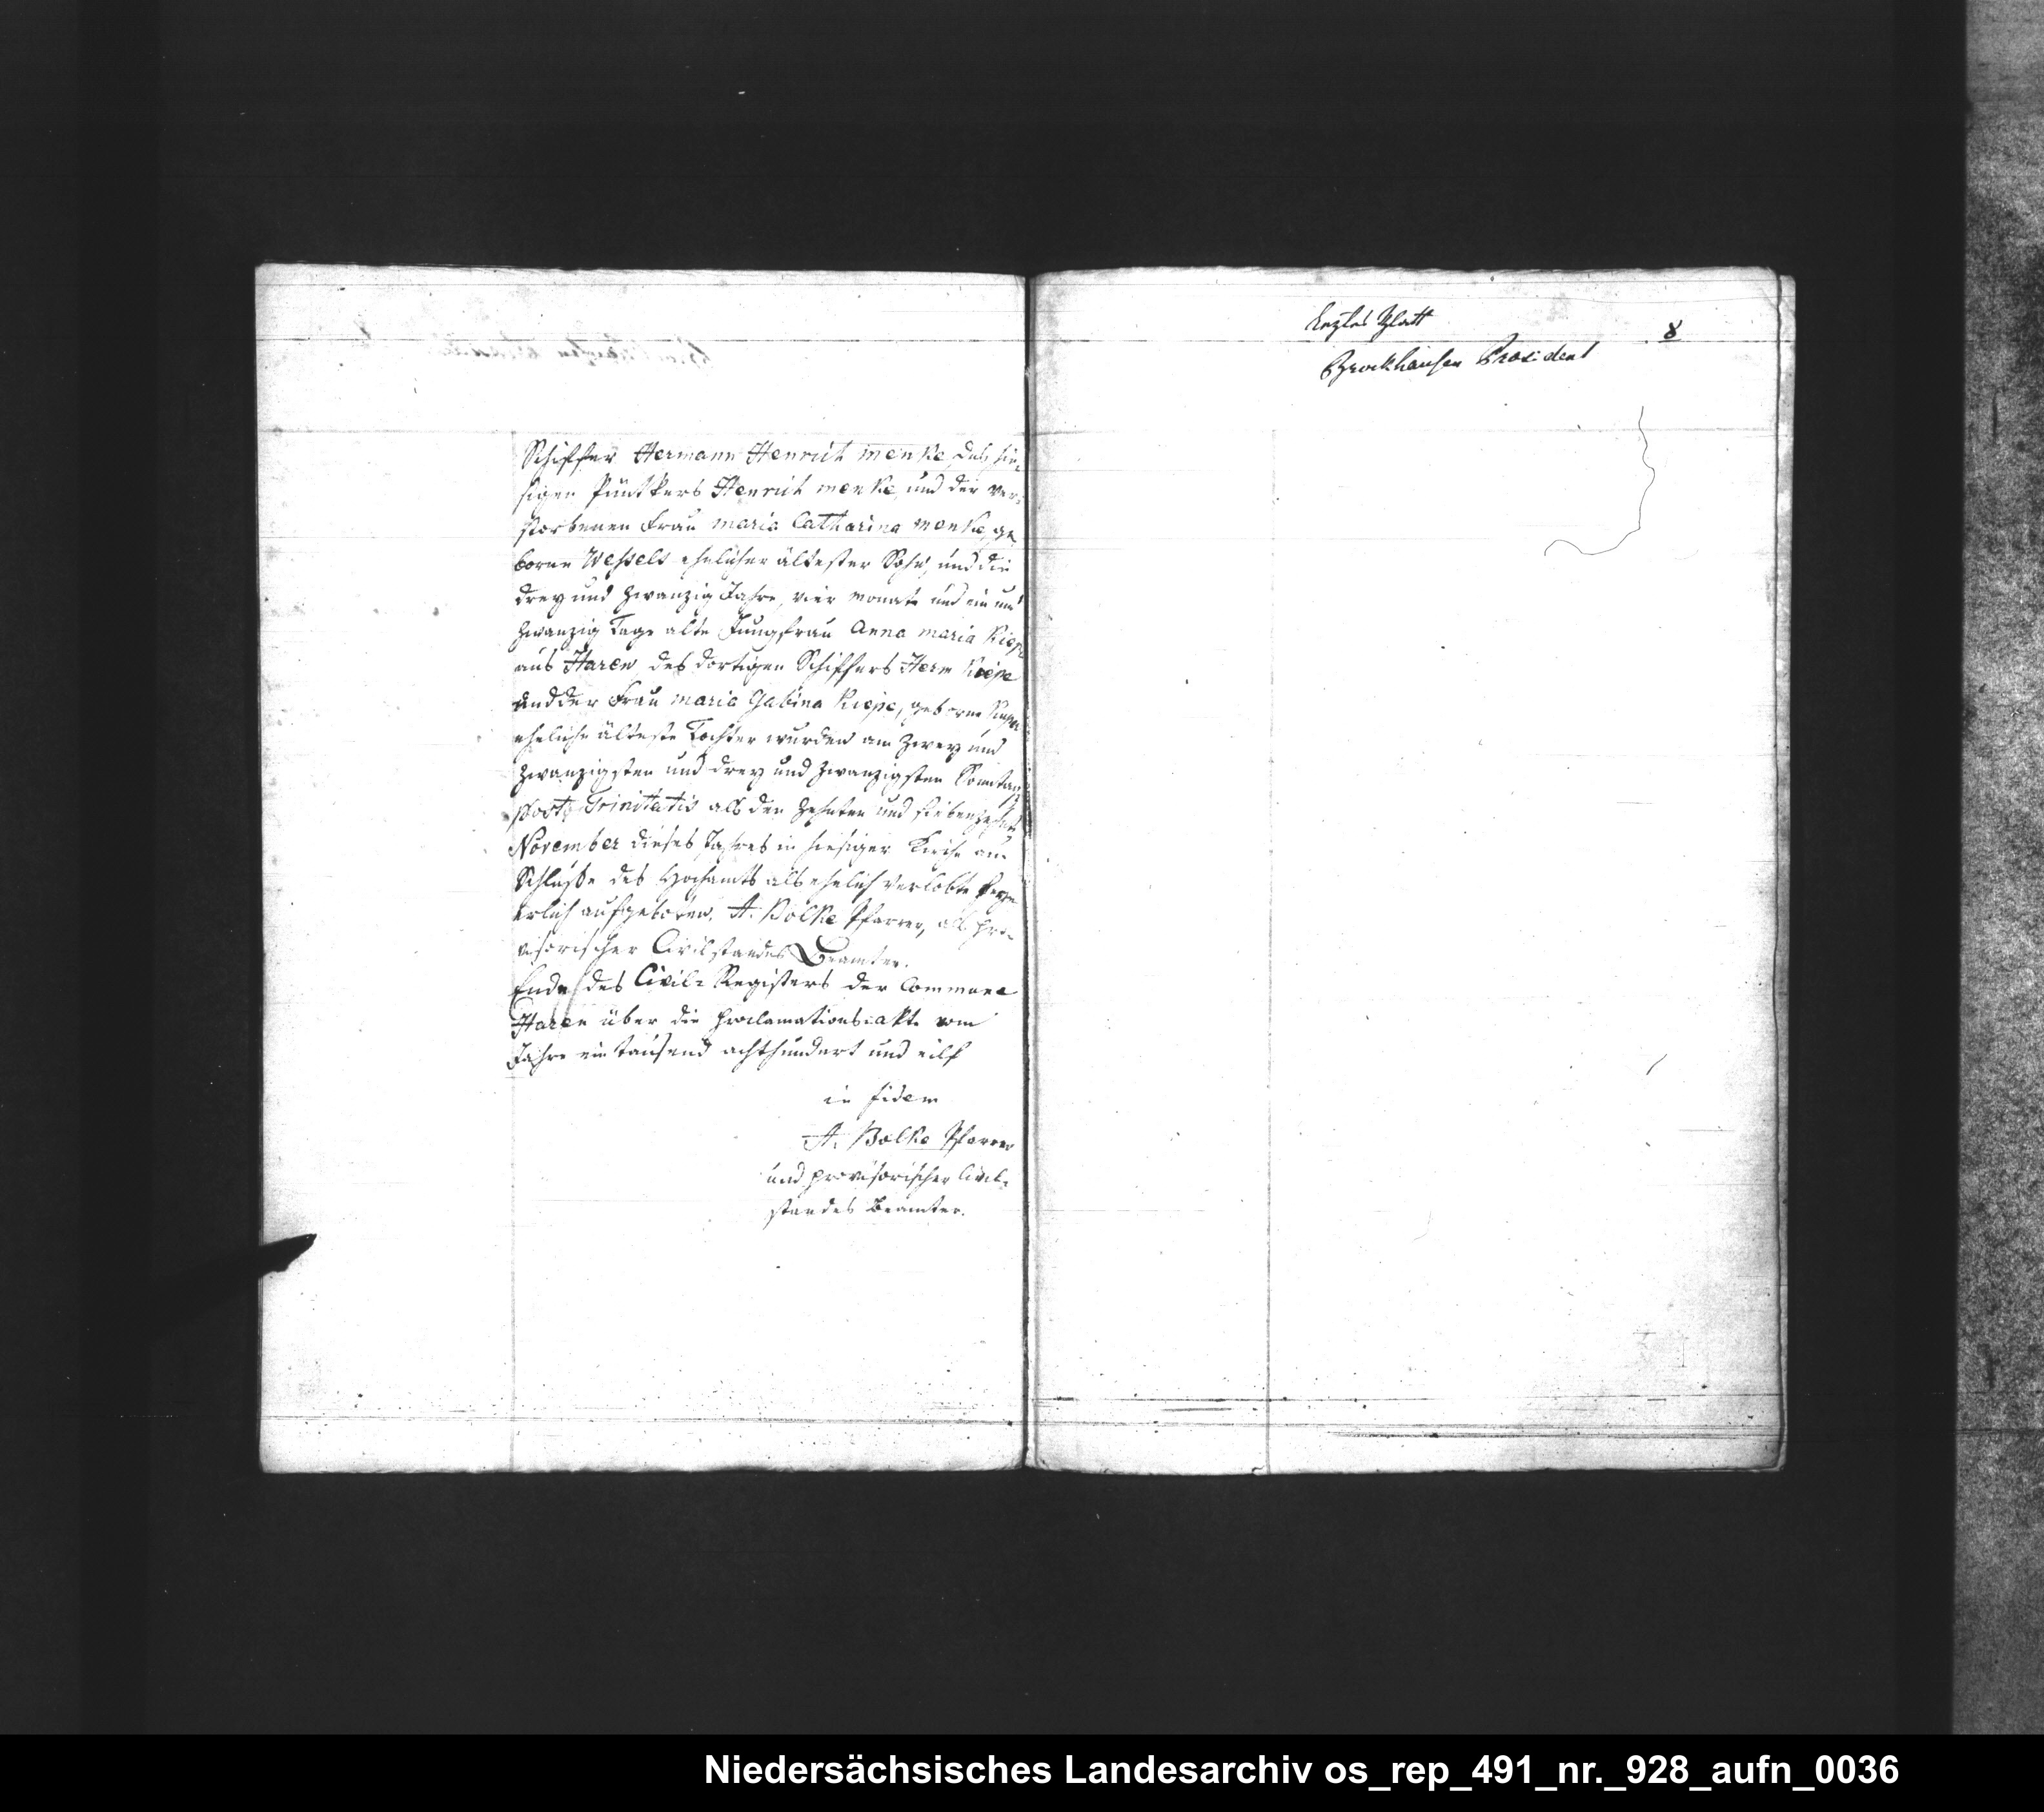 Schiffer Hermann Henrich menke, des hie-
sigen Püntkers Henrich menke, und der ver-
storbenen Frau maria Catharina menke, ge-
borne Wessels ehelicher ältester Sohn, und die
drey und zwanzig Jahre, vier monate und ein und
zwanzig Tage alte Jungfrau Anna maria Kiepe
aus Haren des dortigen Schiffers Herm Kiepe
und der Frau maria Gabina Kiepe, geborne
eheliche älteste Tochter wurden am zwey und
zwanzigsten und drey und zwanzigsten Sonntag
post Trinitatis als den zehnten und siebenzehnten
November dieses Jahres in hiesiger Kirche am
Schlusse des Hochamts als ehelich verlobte
erlich aufgeboten. A. Bölke Pfarrer, als pro-
visorischer Civilstandes Beamter.
Ende des Civil-Registers der Commune
Haren über die Proclamations-akte vom
Jahre ein tausend achthundert und eilf
in fidem
A. Bölke Pfarrer
und provisorischer Civil-
standes Beamter.
Leztes Blatt
8
Brockhausen Praesident
Niedersächsisches Landesarchiv os_rep_491_nr._928_aufn_0036